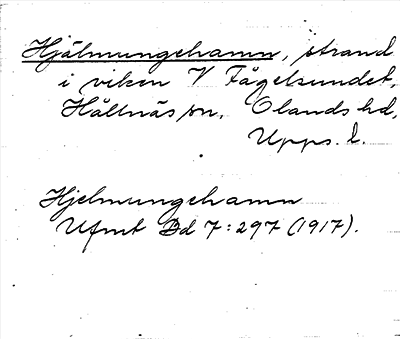 Hjälmungehamn, strand
i viken V Fågelsundet,
Hållnäs sn, Olands hd,
Upps. l.
Hjelmungehamn
Ufmt Bd 7:297 (1917).